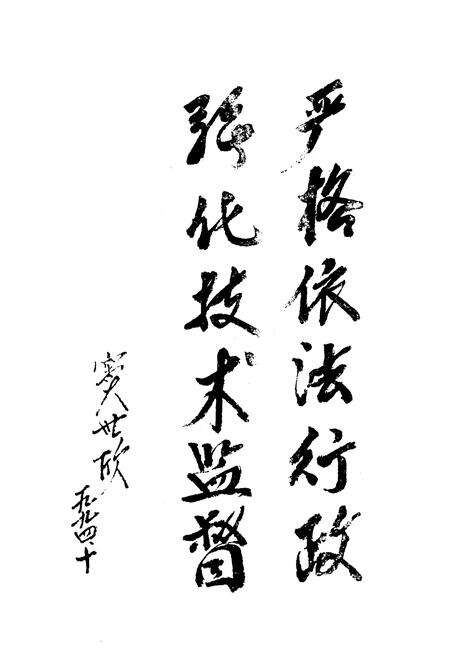 严格依法行政
强化技术监督
世欣
一九九四、十